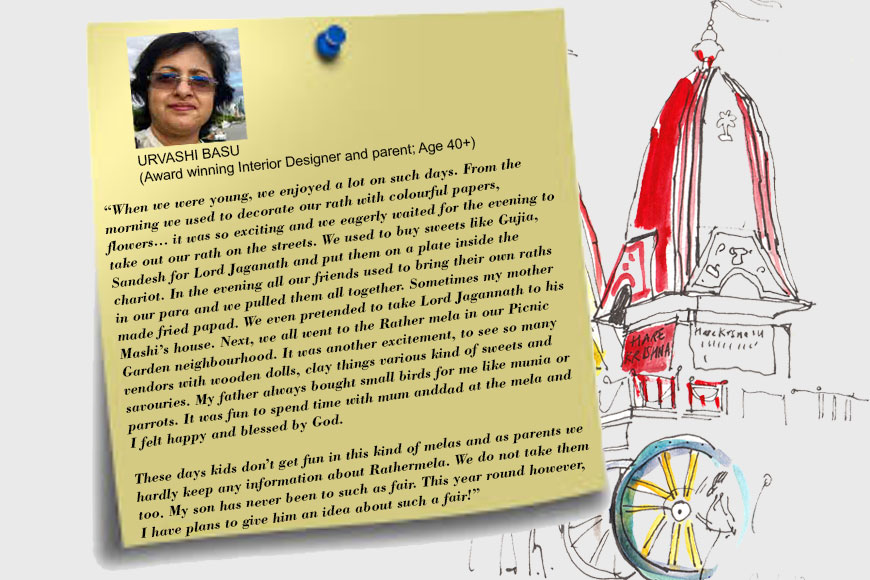 URVASHI BASU
(Award winning Interior Designer and parent; Age 40+)
“When we were young, we enjoyed a lot on such days. From the
morning we used to decorate our rath with colourful papers,
flowers... it was so exciting and we eagerly waited for the evening to
take out our rath on the streets. We used to buy sweets like Gujia,
Sandesh for Lord Jaganath and put them on a plate inside the
chariot. In the evening all our friends used to bring their own raths
in our para and we pulled them all together. Sometimes my mother
made fried papad. We even pretended to take Lord Jagannath to his
Mashi’s house. Next, we all went to the Rather mela in our Picnic
Garden neighbourhood. It was another excitement, to see so many
vendors with wooden dolls, clay things various kind of sweets and
savouries. My father always bought small birds for me like munia or
parrots. It was fun to spend time with mum anddad at the mela and
I felt happy and blessed by God.
These days kids don’t get fun in this kind of melas and as parents we
hardly keep any information about Rathermela. We do not take them
too. My son has never been to such as fair. This year round however,
I have plans to give him an idea about such a fair!”
HARE
KRISHNA
Hare Krishna